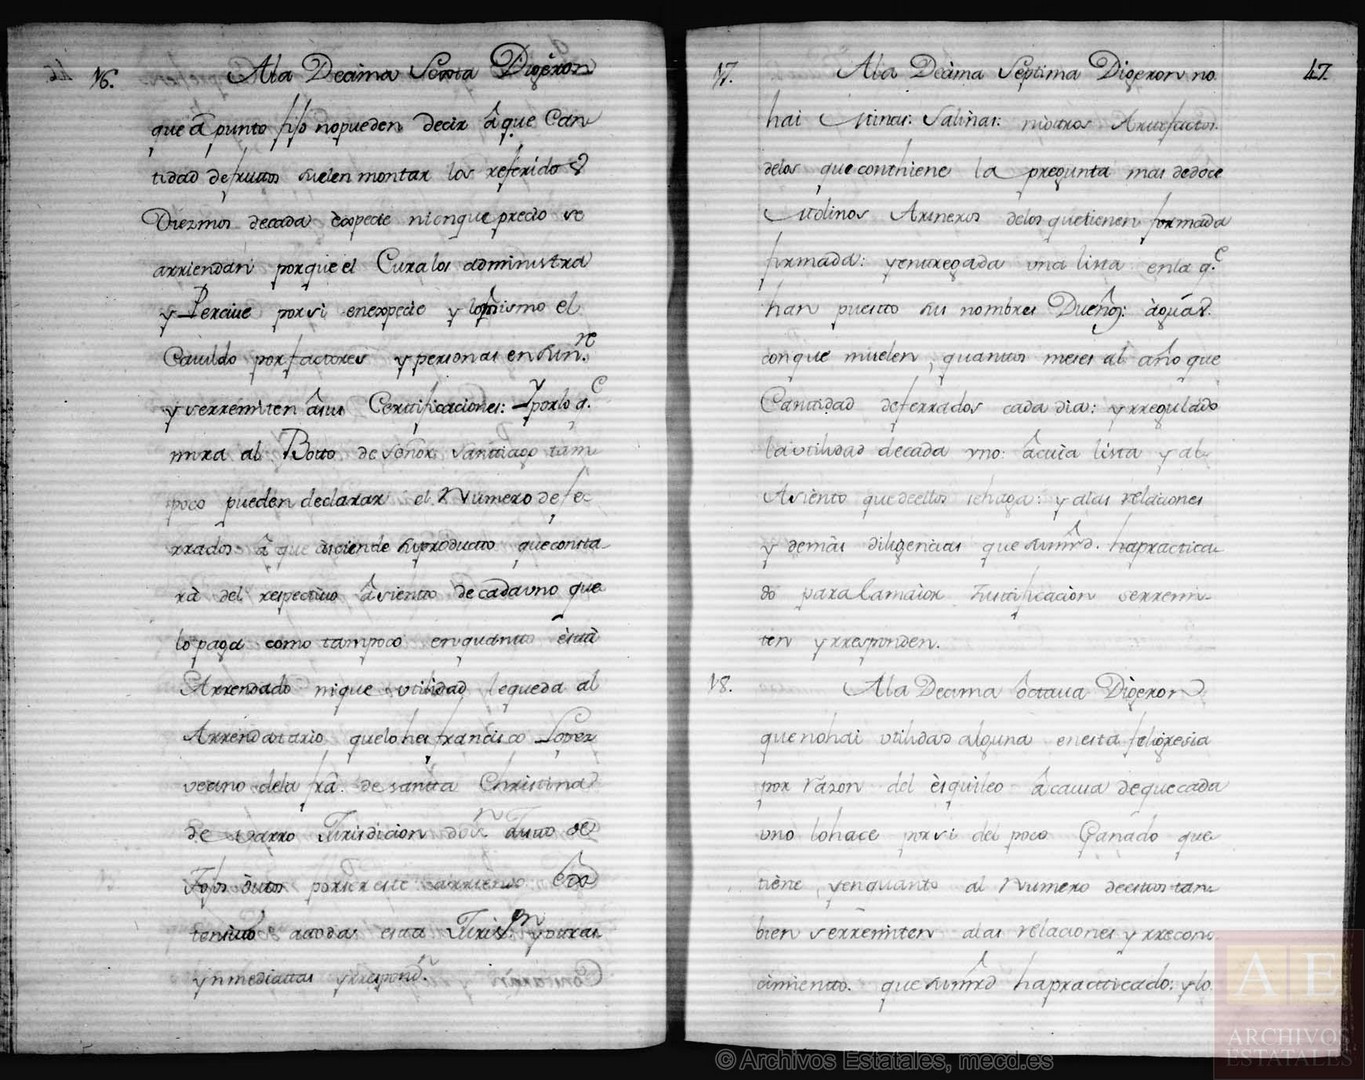 16. Ala Decima Sexta Digeron
que â punto fijo nopueden decir â que Can
tidad defrutos suelen montar los referidos
Diezmos decada èspecie nienque precio se
arriendan porque el Cura los administra
y Percive porsi enexpecie y lo mismo el
Cavildo porfactores y personas en su n.re
y serremiten âsus Certificaciones: Y porlo q.e
mira al Boto de señor santtiago tam
poco pueden declarar el Numero defe
rrados â que àsciende suproducto queconsta
rà del respectivo âsiento decadauno que
lo paga como tampoco enquanto èstà
Arrendado nique utilidad lequeda al
Arrendatario quelo hes franzisco Lopez
vecino dela fra. de santta Christina
de Barro Jurisdicion
porser este arriendo
tensivo atodas esta Juris.on y otras
ynmediattas yrrespond.n
17. Ala Decima Septima Digeron no
hai Minas: Salinas: niotros Artefactos
delos que conthiene la pregunta mas dedoce
Molinos Arineros delos quetienen formada
firmada: yentregada una lista enla q.e
han puestto sus nombres Dueños: àguas
conque muelen, quantos meses al año que
Cantidad deferrados cada dia: yrregulado
la utilidad decada vno: âcuia lista y al
Asiento quedeellos sehaga: y alas relaciones
y demàs diligencias que su mrd. hapractica
do para lamaior Justificaciòn serremi-
ten yrresponden.
18. Ala Decima òctava Digeron
quenohai vtilidad alguna enesta feligresia
por razon del èsquileo âcausa deque cada
vno lohace porsi del poco Ganado que
tiene, yenquanto al Numero deestos tam
bien serremiten alas relaciones y rrecono
cimiento. que su mrd hapractticado: ylo
47.
© Archivos Estatales, mecd.es
AE
ARCHIVOS
ESTATALES